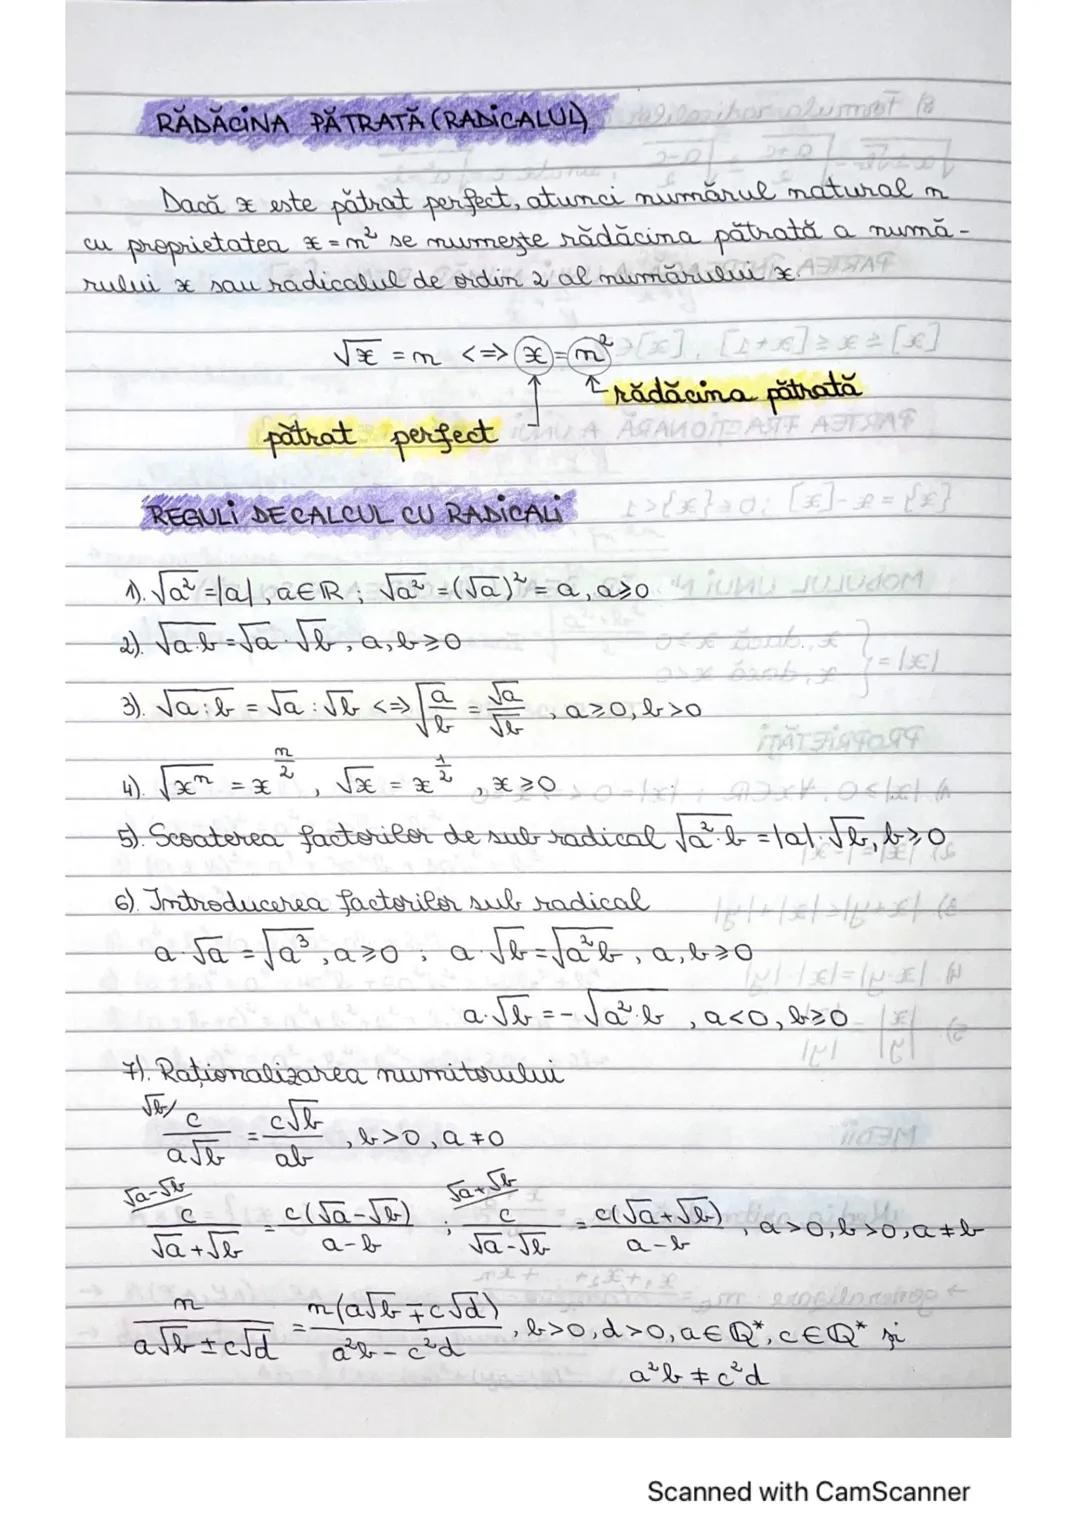 RĂDĂCINA PĂTRATĂ (RADICALUL)
Dacă x este pătrat perfect, atunci numărul natural n
cu proprietatea x = n² se numește rădăcina pătrată a numă-
rului x sau radicalul de ordin 2 al numărului x.
√x = n <=> x = n²
rădăcina pătrată
pătrat perfect
REGULI DE CALCUL CU RADICALI
1). √a² = |a|, a∈R; √a² = (√a)² = a, a≥0
2). √a·b = √a · √b, a, b ≥ 0
3). √a:b = √a : √b <=> √(a/b) = √a/√b, a≥0, b>0
4). √xⁿ = x^(n/2), √x = x^(1/2), x≥0
5). Scoaterea factorilor de sub radical √a²·b = |a|·√b, b≥0
6). Introducerea factorilor sub radical
a·√a = √a³, a≥0; a·√b = √a²b, a, b≥0
a·√b = -√a²·b, a<0, b≥0
7). Raționalizarea numitorului
√b/ c/(a√b) = c√b/(ab), b>0, a≠0
√a-√b/ c/(√a+√b) = c(√a-√b)/(a-b); √a+√b/ c/(√a-√b) = c(√a+√b)/(a-b), a>0, b>0, a≠b
n/(a√b ± c√d) = n(a√b ∓ c√d)/(a²b - c²d), b>0, d>0, a∈Q*, c∈Q* și
a²b ≠ c²d
Scanned with CamScanner